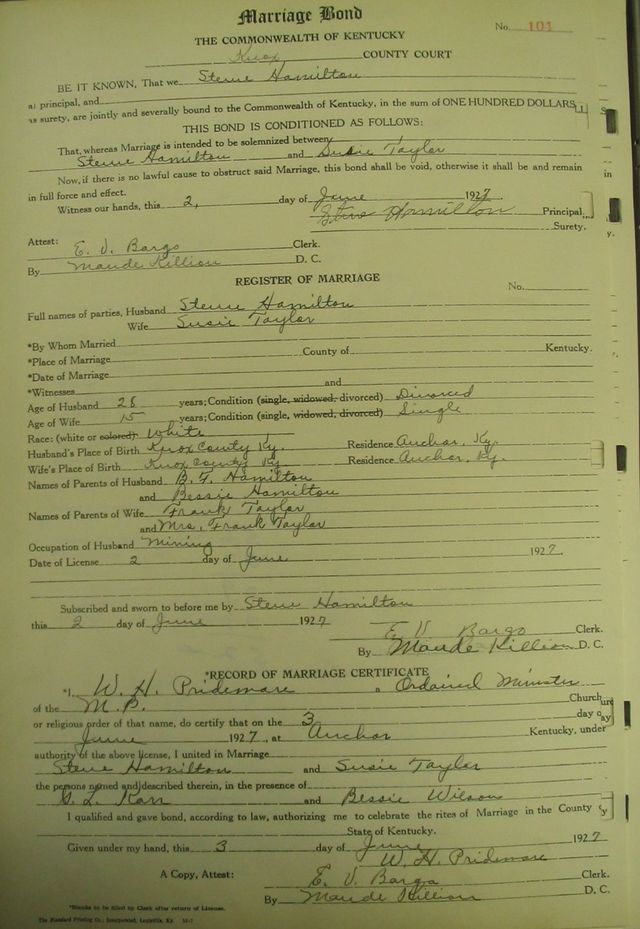 Marriage Bond
No. 101
THE COMMONWEALTH OF KENTUCKY
Knox COUNTY COURT
BE IT KNOWN, That we Steve Hamilton
as principal, and
as surety, are jointly and severally bound to the Commonwealth of Kentucky, in the sum of ONE HUNDRED DOLLARS
THIS BOND IS CONDITIONED AS FOLLOWS:
That, whereas Marriage is intended to be solemnized between
Steve Hamilton and Susie Taylor
Now, if there is no lawful cause to obstruct said Marriage, this bond shall be void, otherwise it shall be and remain
in full force and effect.
Witness our hands, this 2, day of June 1927
Steve Hamilton Principal,
Surety.
Attest:
E. V. Bargo Clerk.
By Maude Killion D. C.
REGISTER OF MARRIAGE
No.
Full names of parties, Husband Steve Hamilton
Wife Susie Taylor
*By Whom Married
*Place of Marriage County of Kentucky.
*Date of Marriage
*Witnesses and
Age of Husband 28 years; Condition (single, widowed, divorced) Divorced
Age of Wife 15 years; Condition (single, widowed, divorced) Single
Race: (white or colored) White
Husband's Place of Birth Knox County Ky. Residence Anchor, Ky.
Wife's Place of Birth Knox County Ky Residence Anchor, Ky.
Names of Parents of Husband B. F. Hamilton
and Bessie Hamilton
Names of Parents of Wife Frank Taylor
and Mrs. Frank Taylor
Occupation of Husband Mining
Date of License 2 day of June 1927.
Subscribed and sworn to before me by Steve Hamilton
this 2 day of June 1927
E. V. Bargo Clerk.
By Maude Killion D. C.
*RECORD OF MARRIAGE CERTIFICATE
*I, W. H. Pridemore a Ordained Minister
of the M. B. Church
or religious order of that name, do certify that on the 3 day of
June 1927, at Anchor Kentucky, under
authority of the above license, I united in Marriage
Steve Hamilton and Susie Taylor
the persons named and described therein, in the presence of
G. L. Karr and Bessie Wilson
I qualified and gave bond, according to law, authorizing me to celebrate the rites of Marriage in the County
State of Kentucky.
Given under my hand, this 3 day of June 1927
W. H. Pridemore
A Copy, Attest: E. V. Bargo Clerk.
By Maude Killion D. C.
*Blanks to be filled by Clerk after return of License.
The Standard Printing Co., Incorporated, Louisville, KY.